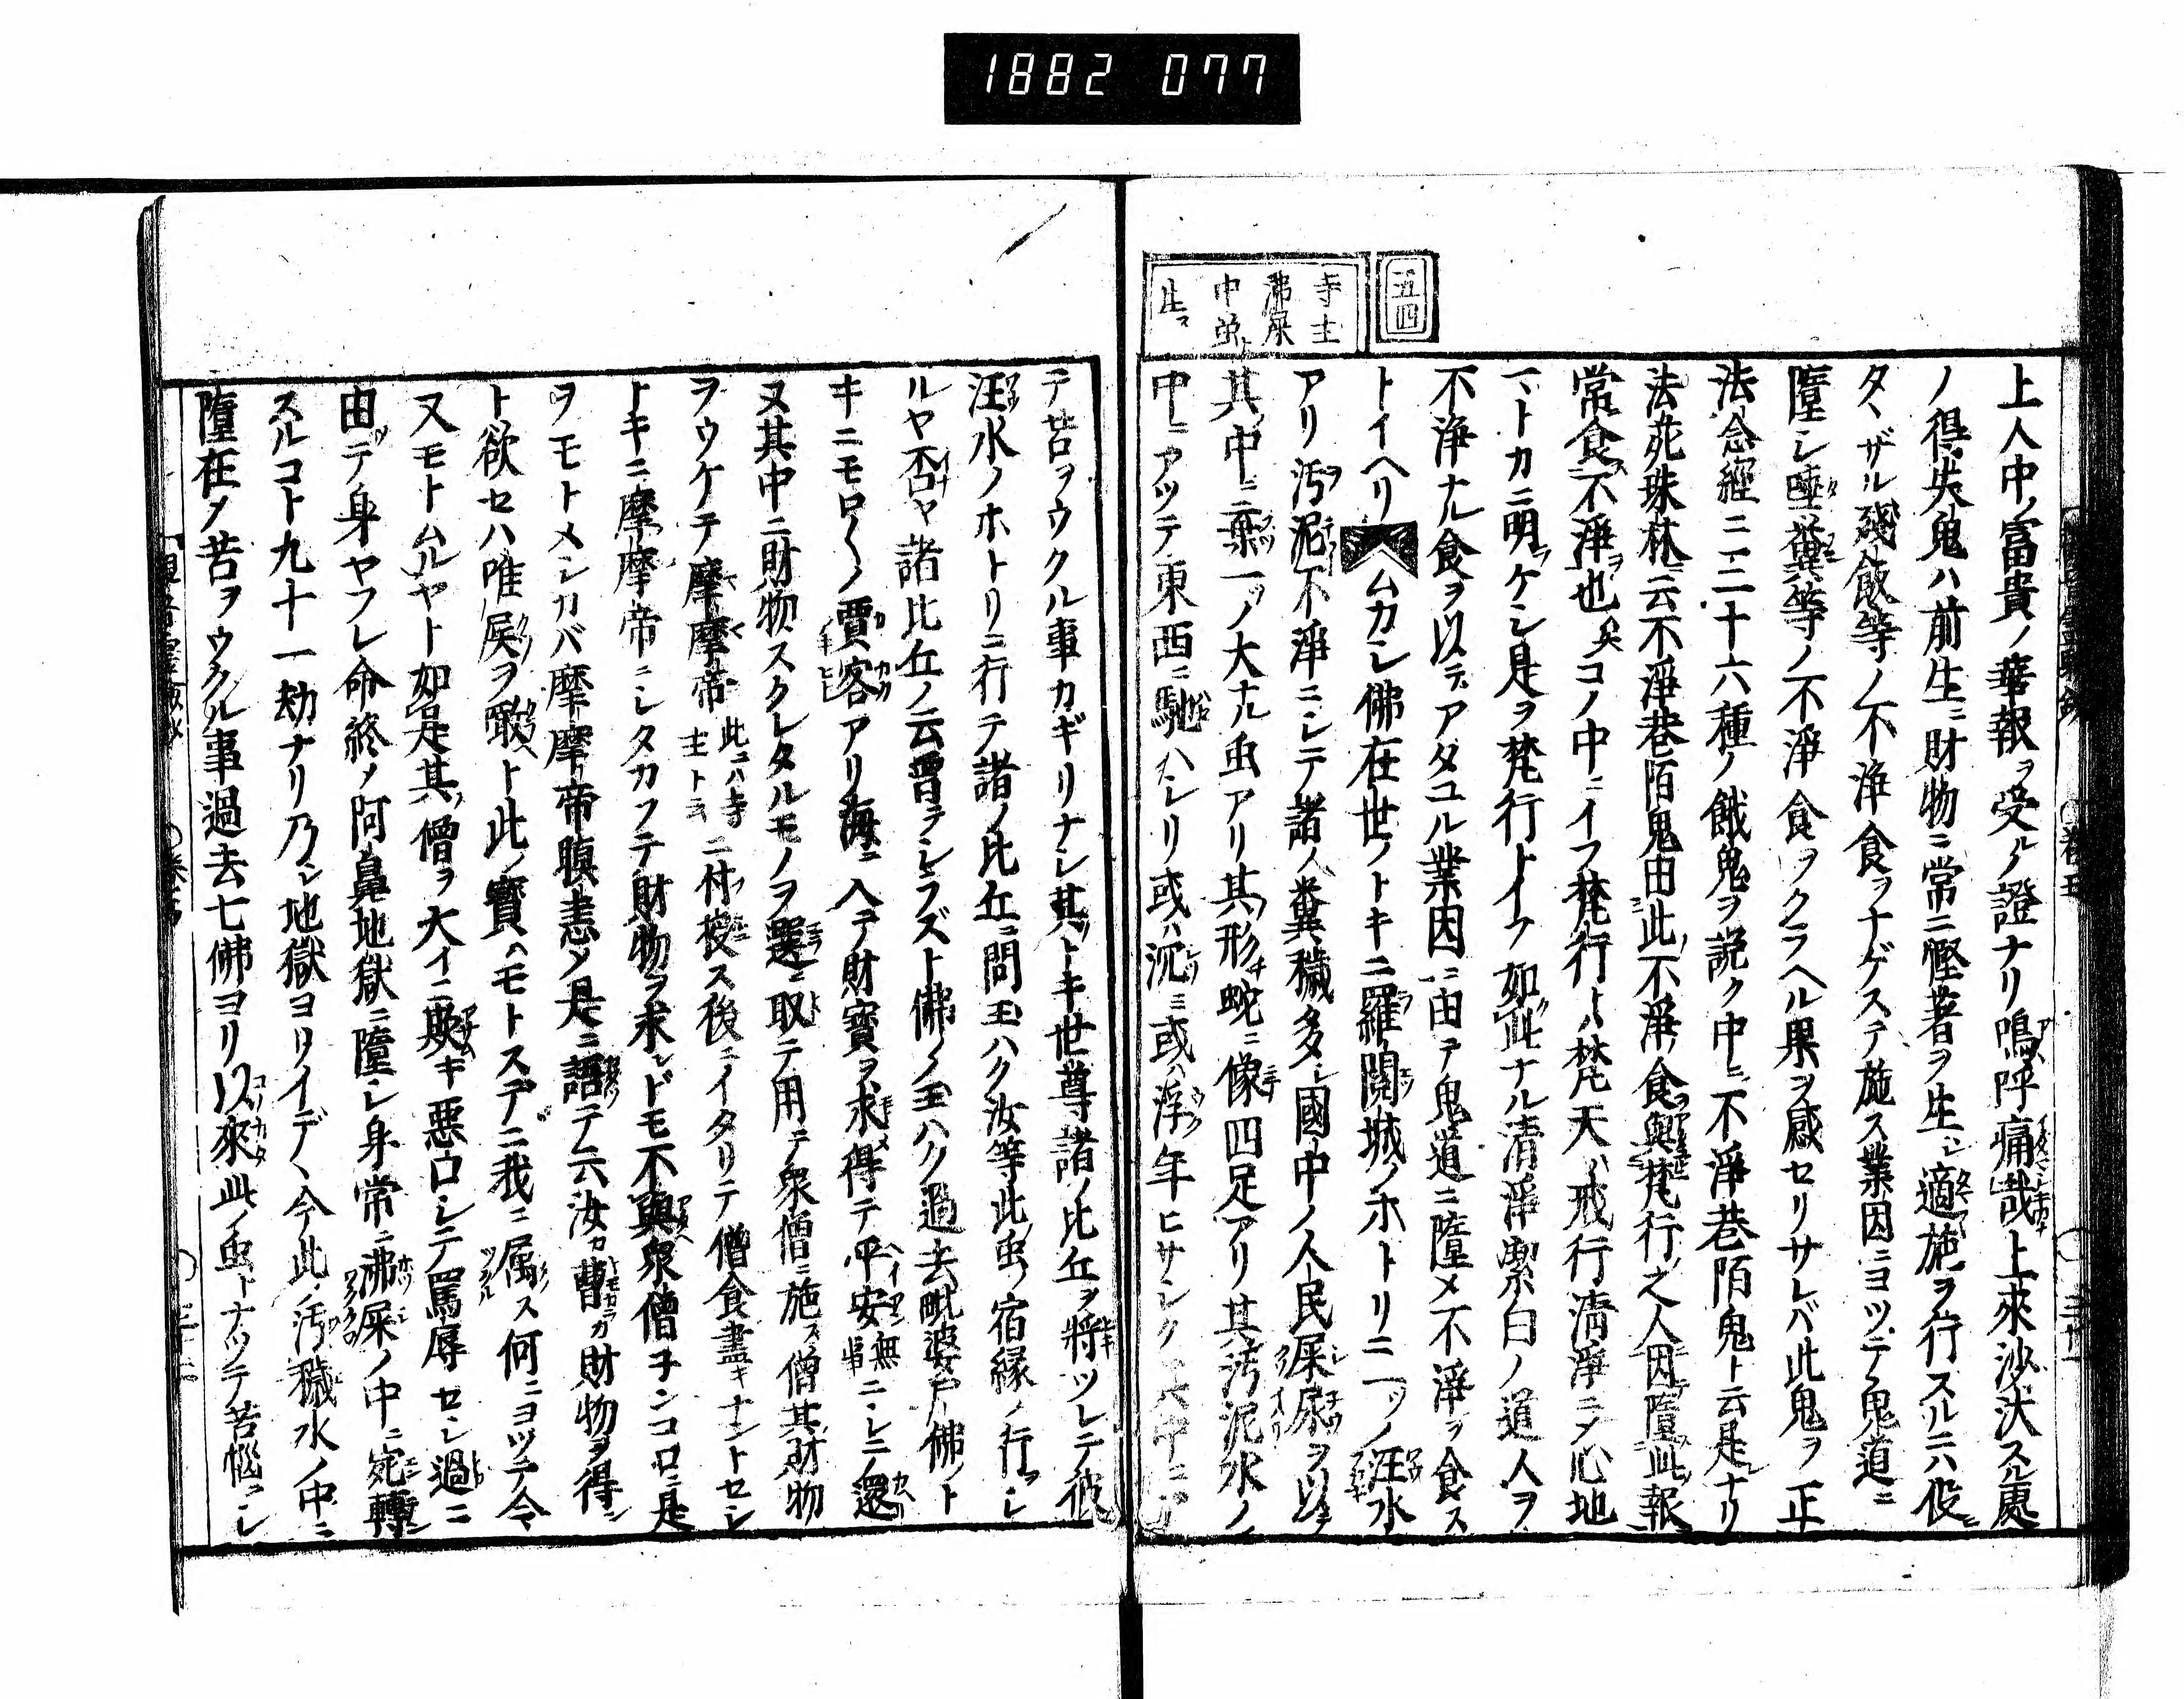 1882 077
五四
寺主
沸屎
中蛍
生ス
上人中ノ富貴ノ華報ヲ受ルノ證ナリ嗚呼痛哉上來沙汰スル處
ノ得失鬼ハ前生ニ財物ニ常ニ慳著ヲ生シ適施ヲ行スルニハ役ニ
タヽザル殘飯等ノ不浄食ヲナゲステ施ス業因ニヨツテ鬼道ニ
墮シ唾糞等ノ不浄食ヲクラヘル果ヲ感セリサレバ此鬼ヲ正
法念經ニ三十六種ノ餓鬼ヲ説ク中ニ不淨巷陌鬼ト云是ナリ
法苑珠林ニ云不淨巷陌鬼由此不淨食與梵行之人因墮此報
常食不淨也矣コノ中ニイフ梵行トハ梵天ハ戒行淸淨ニメ心地
一トカニ明ケシ是ヲ梵行トイフ如此ナル清淨潔白ノ道人ヲ
不浄ナル食ヲ以テアタユル業因ニ由テ鬼道ニ墮メ不淨ヲ食ス
トイヘリ ムカシ佛在世ノトキニ羅閲城ノホトリニ一ツノ汪水
アリ汚泥不淨ニシテ諸ノ糞穢多シ國中ノ人民屎尿ヲ以テ
其中ニ棄一ツノ大ナル虫アリ其形チ蛇ニ像四足アリ其汚泥水ノ
中ニアツテ東西ニ馳ハシリ或ハ沉ミ或ハ浮年ヒサシク其中ニアツ
テ苦ヲウクル事カギリナシ其トキ世尊諸ノ比丘ヲ將ツレテ彼
汪水ノホトリニ行テ諸ノ比丘ニ問玉ハク汝等此虫ノ宿縁ノ行ヲシ
ルヤ否ヤ諸比丘ノ云曽テシラズト佛ノ玉ハク過去毗婆尸佛ノト
キニモロ〳〵ノ賈客アリ海ニ入テ財寶ヲ求得テ平安無事ニシニメ還
ヌ其中ニ財物スクレタルモノヲ選ニ取テ用テ衆僧ニ施ス僧其財物
ヲウケテ摩摩帝此コハ寺主ト云ニ付授ス後ニイタリテ僧食盡キナントセシ
トキニ摩摩帝ニシタカフテ財物ヲ求レドモ不與衆僧子ンコロニ是
ヲモトメシカバ摩摩帝瞋恚メ是ニ語テ云汝カ曹カ財物ヲ得ン
ト欲セハ唯屎ヲ噉ヘト此寶ハモトスデニ我ニ属ス何ニヨツテ今
又モトムルヤト如是其僧ヲ大イニ欺キ悪口シテ罵辱セシ過ニ
由テ身ヤフレ命終メ阿鼻地獄ニ墮シ身常ニ沸屎ノ中ニ宛轉
スルコト九十一劫ナリ乃シ地獄ヨリイデヽ今此ノ汚穢水ノ中ニ
墮在メ苦ヲウクル事過去七佛ヨリ以來此ノ虫トナツテ苦惱ヲシ